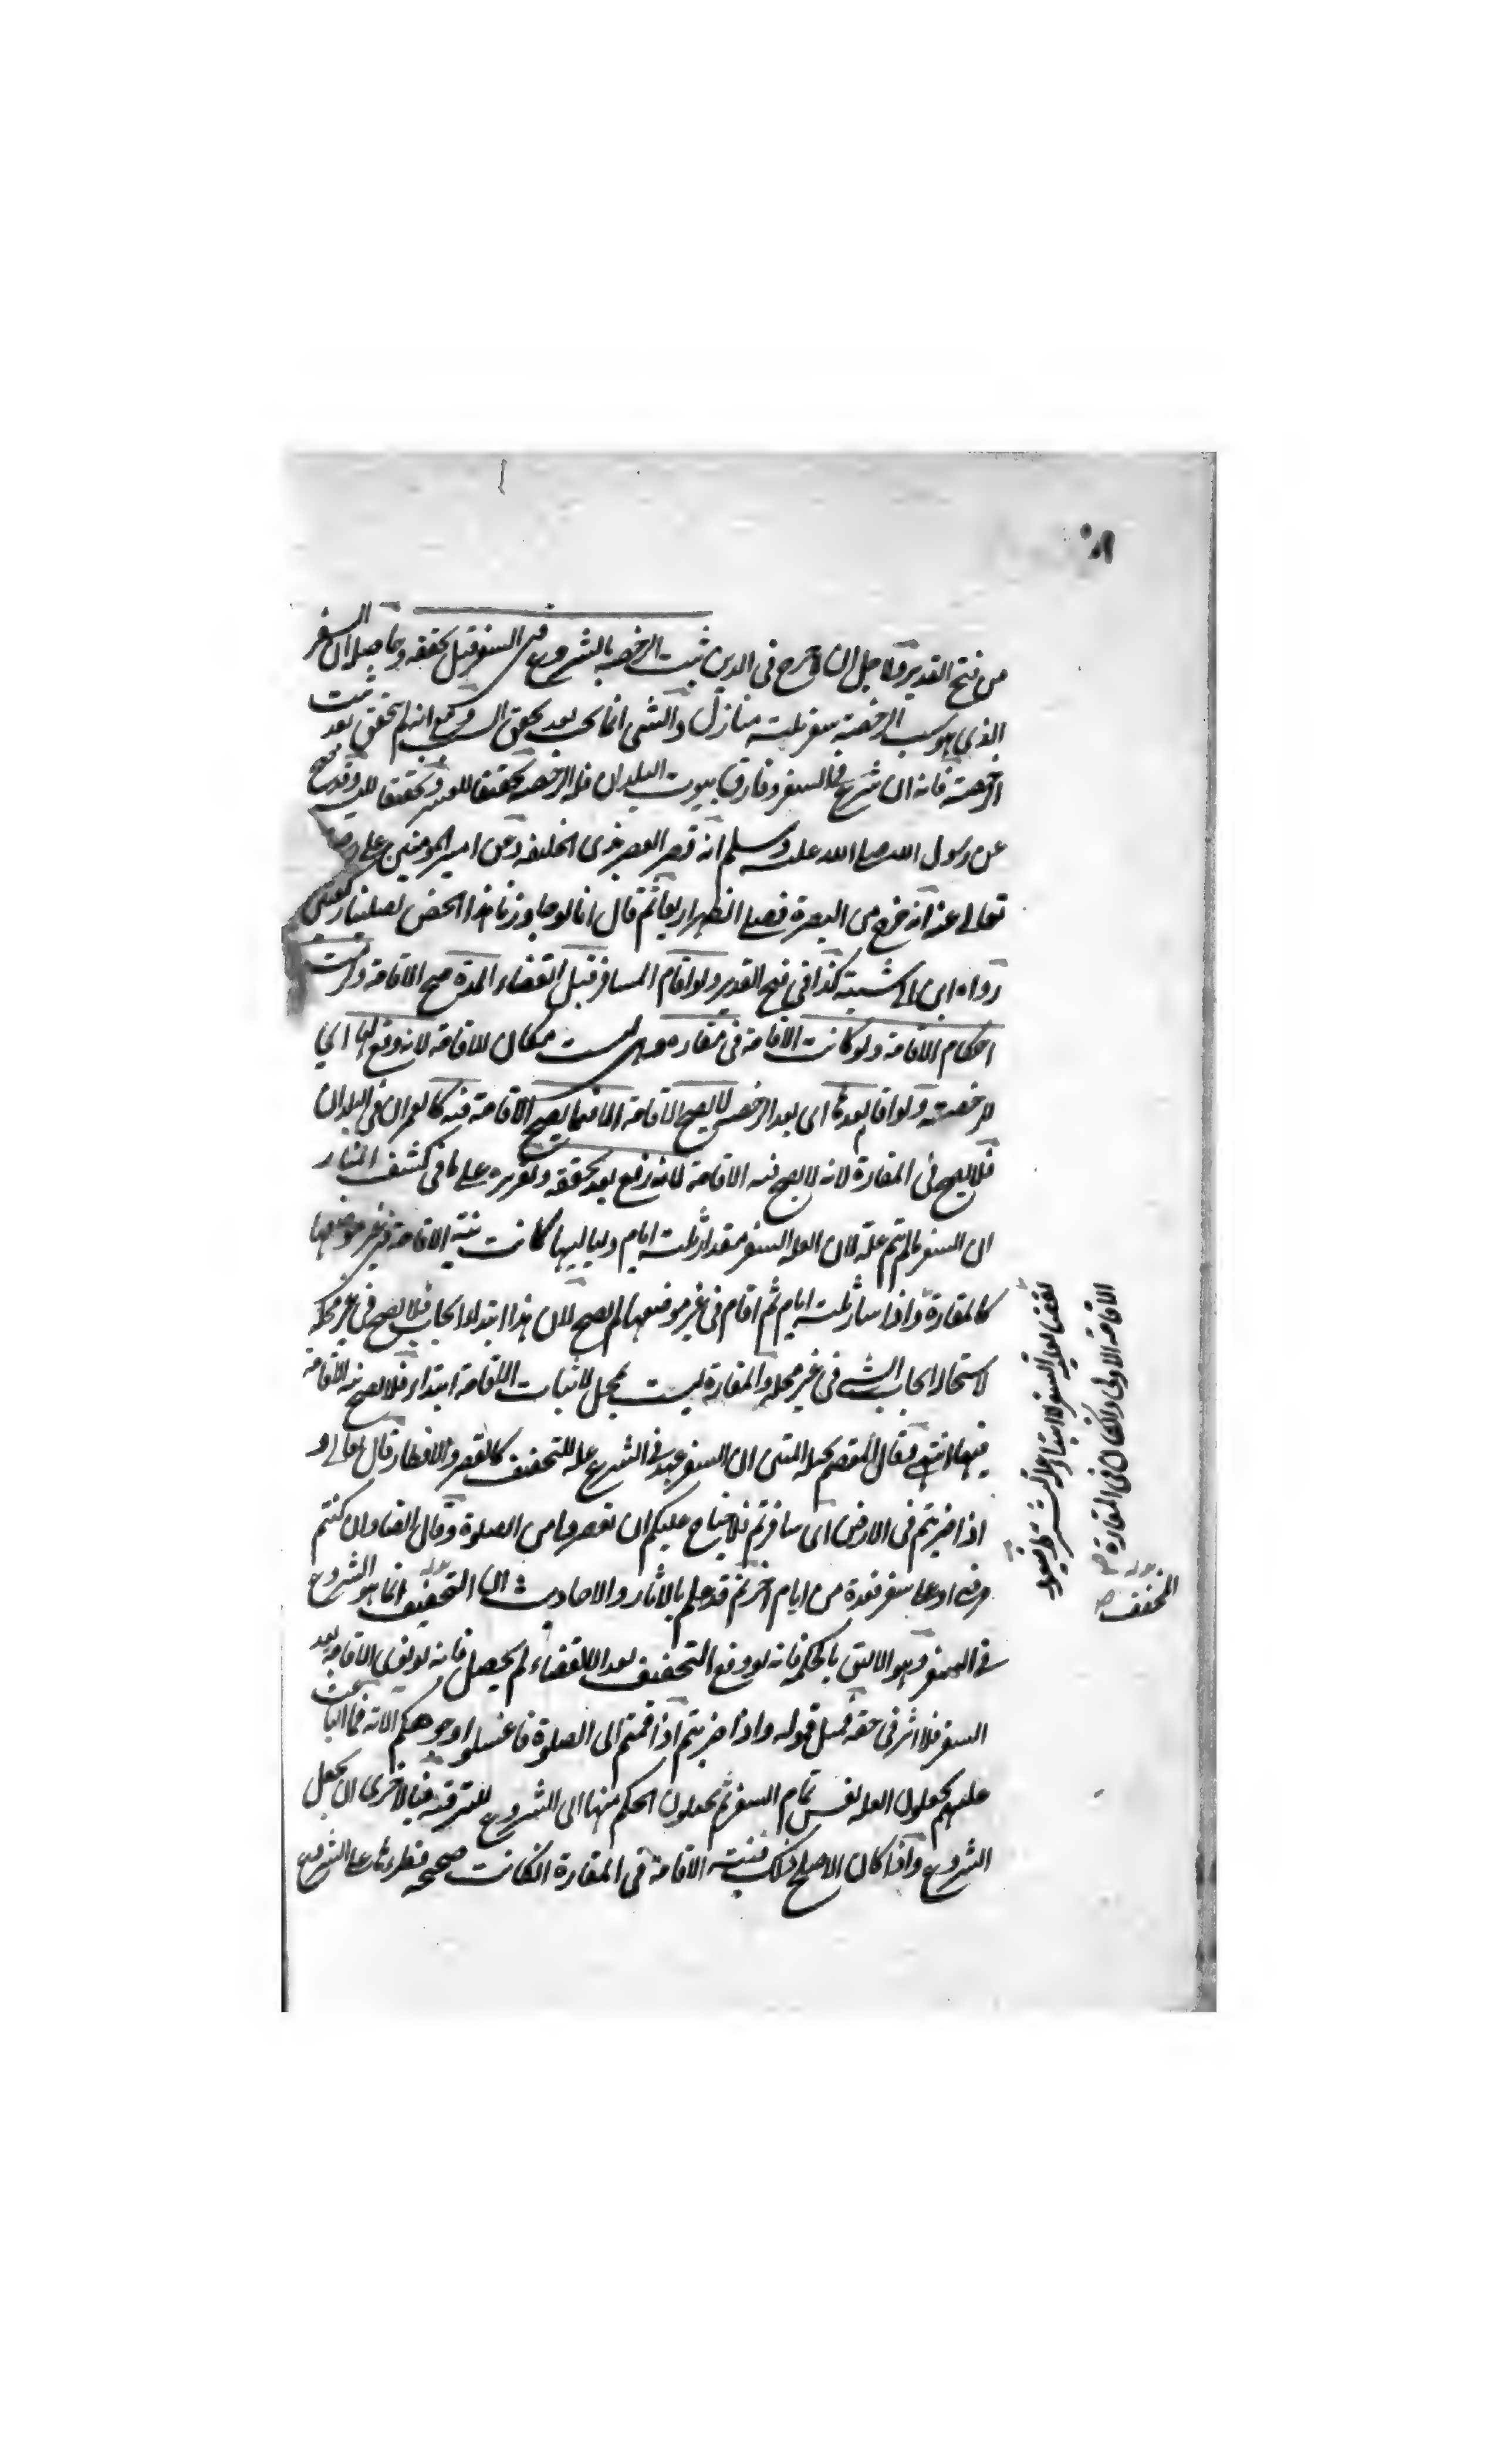 من فتح القدير ولاجل ان لا حرج في الدين ثبت الرخصة بالشروع في السفر قبل تحققه وحاصله ان السفر
الذي هو سبب الرخصة سفر ثلثة منازل والشئ انما يجب بعد تحقق السبب مع انه لم يتحقق بعد ثبت
الرخصة فانه ان شرع في السفر وفارق بيوت البلدان فله الرخصة تحقيقا لليسر وقد صح
عن رسول الله صلى الله عليه وسلم انه قصر العصر بذي الحليفة وعن امير المؤمنين علي رضي
تعالى عنه انه خرج من البصرة فصلى الظهر اربعا ثم قال انا لو جاوزنا هذا الخص لصلينا ركعتين
رواه ابن ابي شيبة كذا في فتح القدير ولو اقام المسافر قبل انقضاء المدة صح الاقامة ولزمت
احكام الاقامة ولو كانت الاقامة في مفازة وهي ليست بمكان للاقامة لانه دفع لها اي
للرخصة ولو اقام بعدها اي بعد الرخص لا يصح الاقامة الا فيما يصح الاقامة فيه كالعمران في البلدان
فلا يصح في المفازة لانه لا يصح فيه الاقامة لانه رفع بعد تحققه وتقريره على ما في كشف المنار
ان السفر لما لم يتم علة لان العلة السفر بمقدار ثلثة ايام ولياليها كانت نية الاقامة في غير موضعها
كالمفازة واذا سار ثلثة ايام ثم اقام في غير موضعها لم يصح لان هذا ابتداء ايجاب فلا يصح في غير محله
لاستحالة ايجاب الشئ في غير محله والمفازة ليست بمحل لاثبات الاقامة ابتداء فلا يصح نية الاقامة
فيها انتهى المتن ان السفر عهد في الشرع علة للتخفيف كالقصر والافطار قال تعالى و
اذا ضربتم في الارض اى سافرتم فلا جناح عليكم ان تقصروا من الصلوة وقال ايضا وان كنتم
مرضى او على سفر فعدة من ايام اخر ثم قد علم بالآثار والاحاديث ان التخفيف انما هو الشروع
في السفر وهو الاليق بالحكم فانه لو وقع التخفيف بعد الانقضاء لم يحصل فانه لو نوى الاقامة بعد
السفر فلا اثر في حقه لمثل قوله واذا ضربتم اذا قمتم الى الصلوة فاغسلوا وجوهكم الاية فما الباعث
عليهم يجعلون العلة نفس تمام السفر ثم يجعلون الحكم منها الى الشروع للترفية فبالاحرى ان يجعل
الشروع واذا كان الاصلح ذلك فنية الاقامة في المفازة ان كانت صحيحة فطريانها على الشروع
الاقامة الاولى ولو كان في المفازة
المخفف